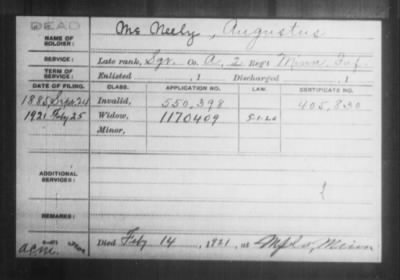 DEAD
NAME OF SOLDIER: Mc Neely, Augustus
SERVICE: Late rank, Sgt. Co. A, 2 Reg't Minn. Inf.
TERM OF SERVICE: Enlisted , 1 Discharged , 1
DATE OF FILING. CLASS. APPLICATION NO. LAW. CERTIFICATE NO.
1885, Sept. 24 Invalid, 550,398 405,830
1921 Feb 25 Widow, 1170409 5-1-20
Minor,
ADDITIONAL SERVICES:
REMARKS:
Died Feb 14, 1921, at Mpls, Minn
acm.